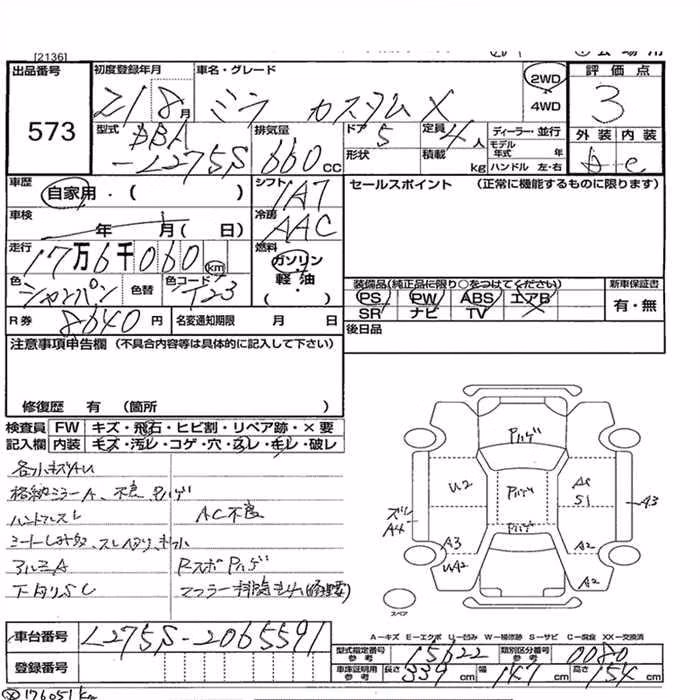 [2136]
出品番号 573
初度登録年月 21 8月
車名・グレード ミラ カスタムX
2WD 4WD
評価点 3
外装 内装
型式 DBA-L275S
排気量 660 cc
ドア 5 形状
定員 4人 積載 kg
ディーラー・並行
モデル年式 年
ハンドル 左・右
車歴 自家用・( )
シフト IAT
セールスポイント (正常に機能するものに限ります)
車検 年 月( 日)
冷房 AAC
走行 17万6千060 km
燃料 ガソリン 軽油 ( ・ )
色 シャンパン 色替 色コード T23
装備品(純正品に限り○をつけてください) 新車保証書
PS PW ABS エアB 有・無
SR ナビ TV
R券 8640円 名変通知期限 月 日
後日品
注意事項申告欄 (不具合内容等は具体的に記入して下さい)
修復歴 有 (箇所
検査員 FW キズ・飛石・ヒビ割・リペア跡・×要
記入欄 内装 キズ・汚レ・コゲ・穴・スレ・キレ・破レ
各小キズAU
格納ミラーA、不良
AC不良
アルミA
RスポPハゲ
下廻りSC
マフラー
Pハゲ
U2 Pハゲ A2 S1
ズレ A4 A3
Pハゲ
A3 A2
UA2 A2
スペア
A-キズ E-エクボ U-凹み W-補修跡 S-サビ C-腐食 XX-交換済
車台番号 L275S-2065591
型式指定番号 参考 15622 類別区分番号 参考 0080
登録番号
車庫証明用 参考 長さ 339cm 幅 147cm 高さ 154cm
176051 km